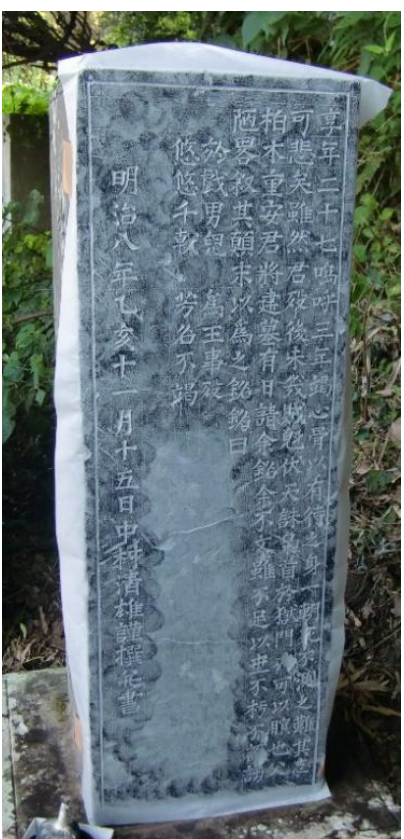 享年二十七嗚呼三年竭心膂以有得之身一朝不測之難其
可悲矣雖然君歿後未幾賊魁伏大誅首於獄門可以瞑也
柏木重安君將建墓有日請余銘余不文雖不足以不朽
陋畧敘其顛末以為之銘銘曰
於戲男兒 為王事歿
悠悠千載 芳名不竭
明治八年乙亥十一月十五日中村清雄謹撰并書